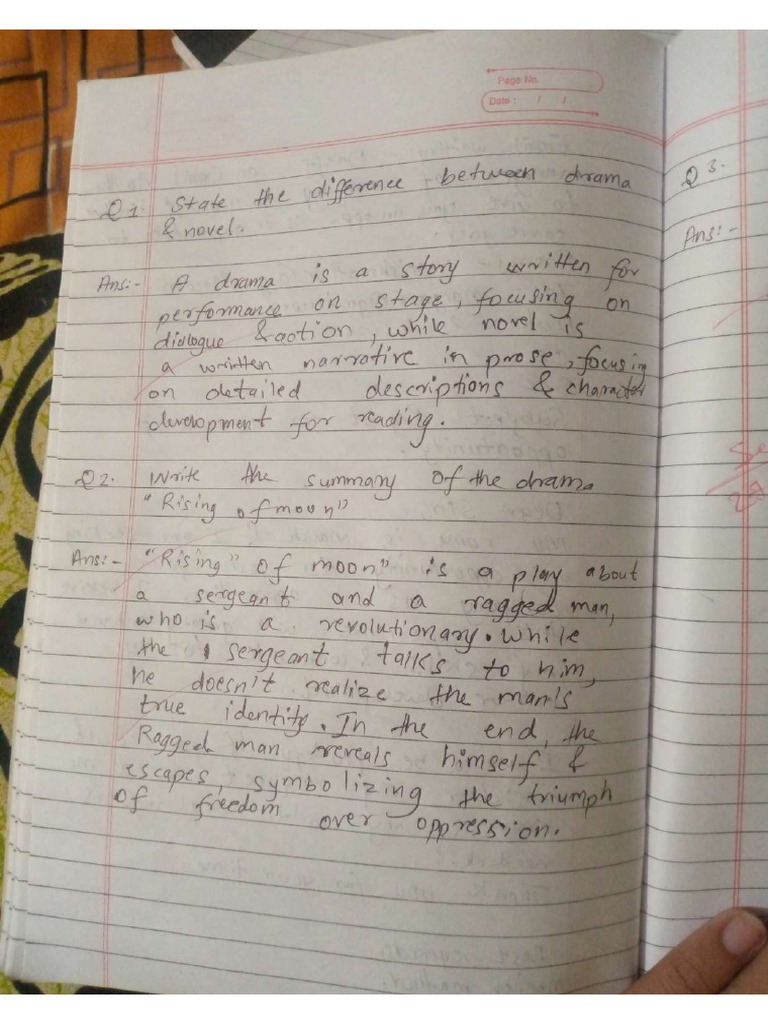 Page No.
Date : / /
Q 1. State the difference between drama
& novel.
Ans:- A drama is a story written for
performance on stage, focusing on
dialogue & action, while novel is
a written narrative in prose, focusing
on detailed descriptions & character
development for reading.
Q 2. Write the summary of the drama
"Rising of moon"
Ans:- "Rising" of moon" is a play about
a sergeant and a ragged man,
who is a revolutionary. While
the sergeant talks to him,
he doesn't realize the man's
true identity. In the end, the
Ragged man reveals himself &
escapes, symbolizing the triumph
of freedom over oppression.
Q 3.
Ans:-